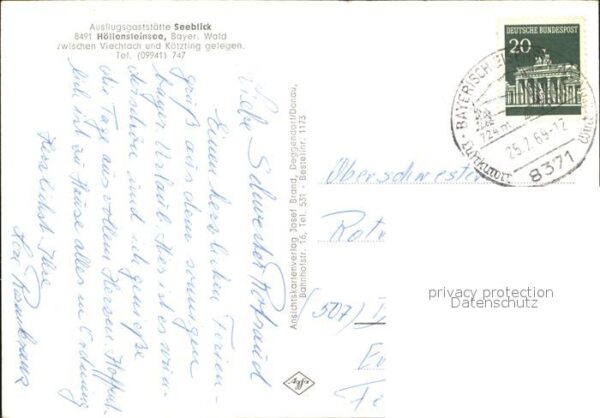 Ausflugsgaststätte Seeblick
8491 Höllensteinsee, Bayer. Wald
zwischen Viechtach und Kötzting gelegen.
Tel. (09941) 747
Liebe Schwester Rotraud
Einen herzlichen Ferien-
gruß aus dem sonnigen
Bayer. Urlaub. Hier ist es wun-
derschön und ich genieße
die Tage aus vollem Herzen. Hoffent-
lich ist zu Hause alles in Ordnung
Herzlichst Ihre
Ansichtskartenverlag Josef Brand, Deggendorf/Donau,
Bahnhofstr. 16, Tel. 531 - Bestellnr. 1173
20
DEUTSCHE BUNDESPOST
BAYERISCH
25.7.69-12
Luftkurort
8371
Oberschwester
Rotr
(507)
privacy protection
Datenschutz